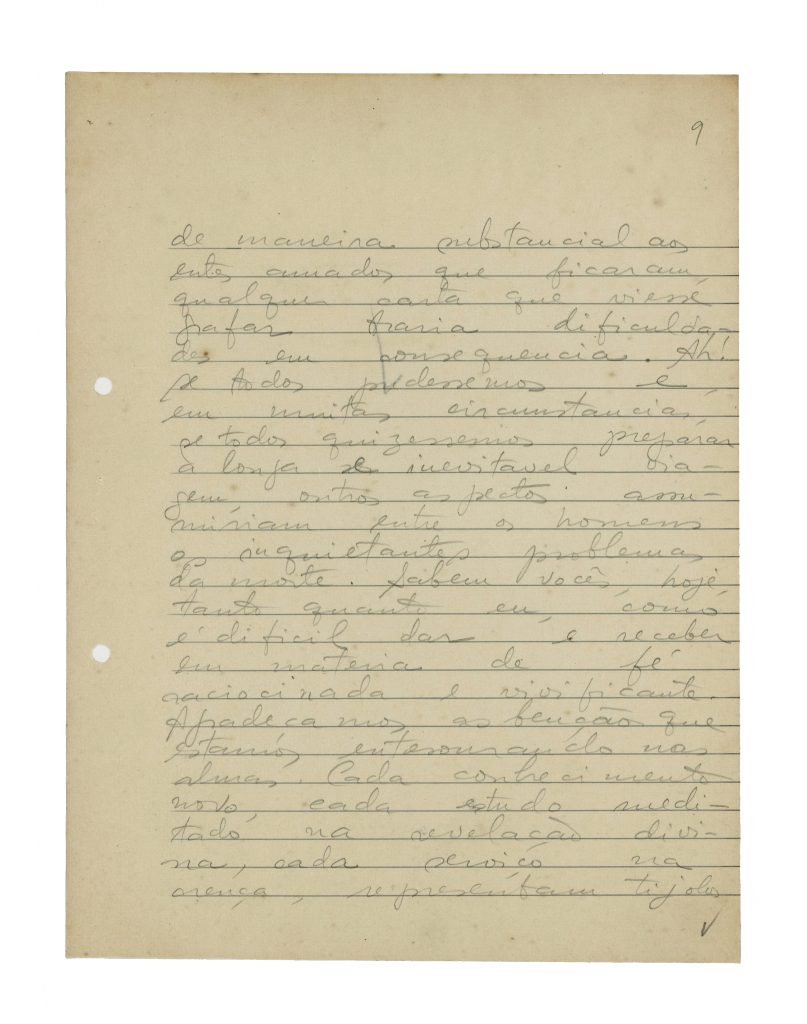 9
de maneira substancial aos
entes amados que ficaram,
qualquer carta que viesse
grafar traria dificulda-
des em consequencia. Ah!
se todos pudessemos e,
em muitas circumstancias,
se todos quizessemos preparar
a longa e inevitavel via-
gem, outros aspectos assu-
miriam entre os homens
os inquietantes problemas
da morte. Sabem vocês, hoje,
tanto quanto eu, como
é dificil dar e receber
em materia de fé
raciocinada e vivificante.
Agradeçamos as bençãos que
estamos entesourando nas
almas. Cada conhecimento
novo, cada estudo medi-
tado na revelação divi-
na, cada serviço na
crença, representam tijolos